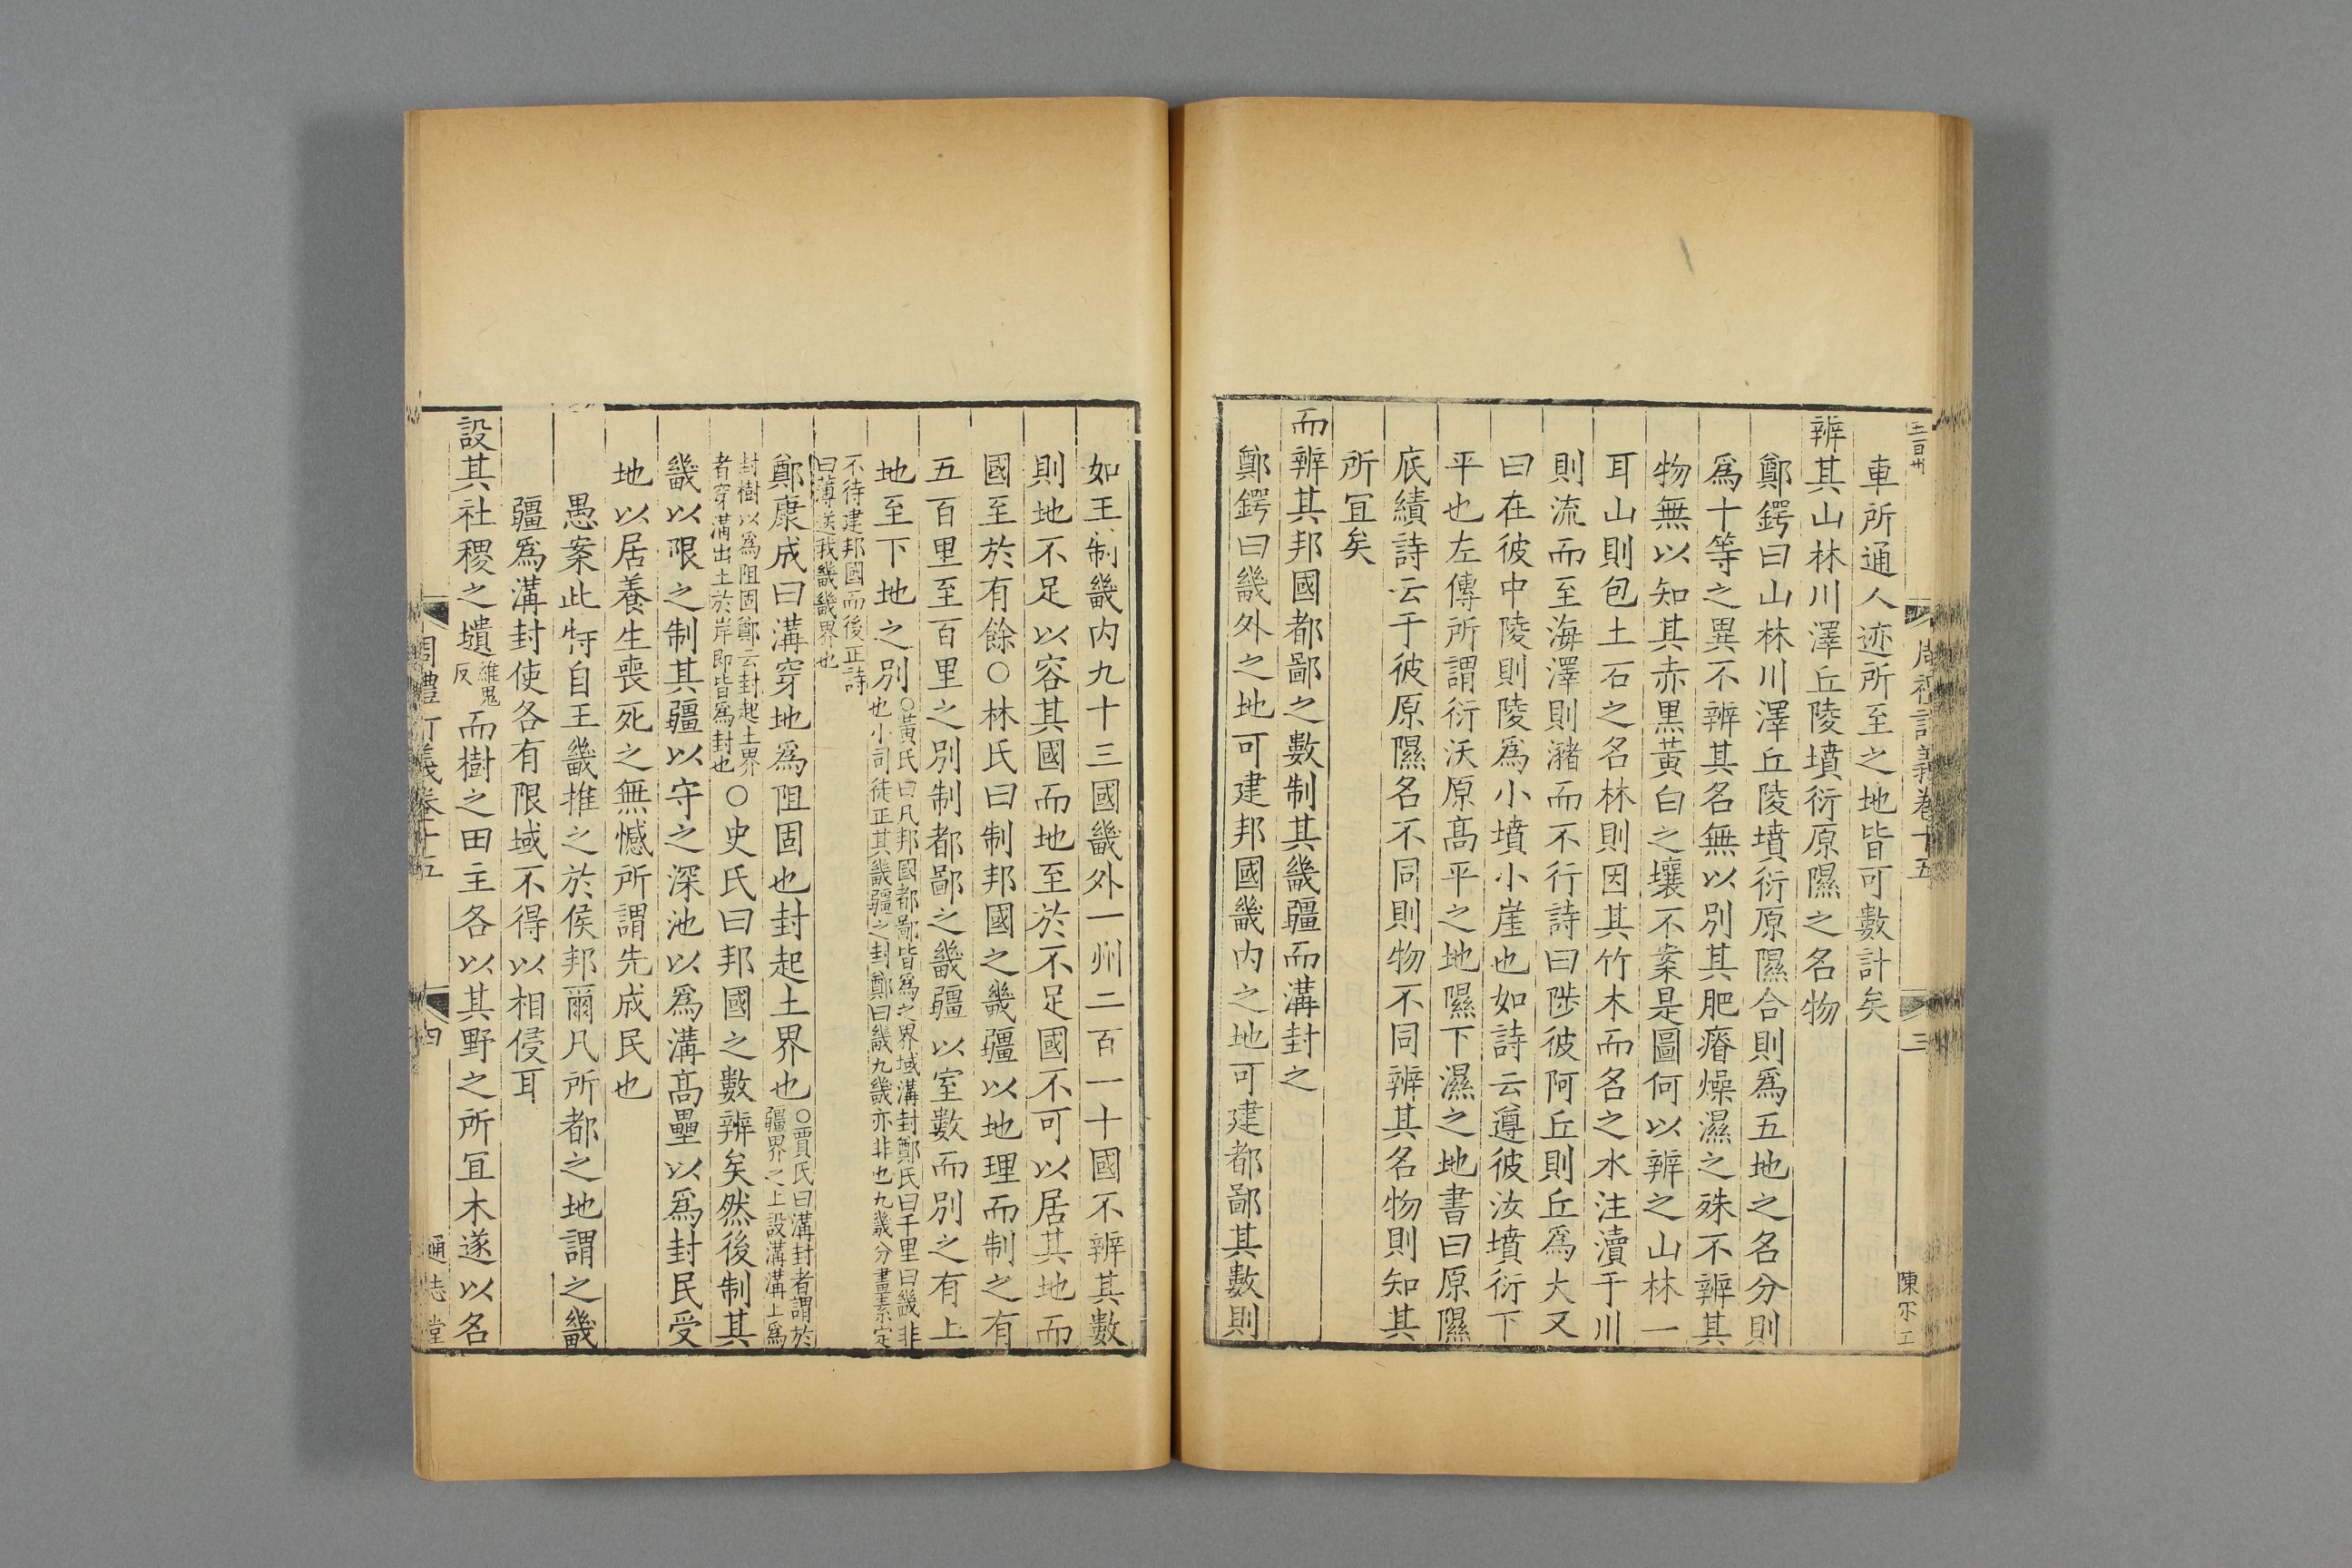 車所通人迹所至之地皆可數計矣
辨其山林川澤丘陵墳衍原隰之名物
鄭鍔曰山林川澤丘陵墳衍原隰合則爲五地之名分則
爲十等之異不辨其名無以別其肥瘠燥濕之殊不辨其
物無以知其赤黒黃白之壤不案是圖何以辨之山林一
耳山則包土石之名林則因其竹木而名之水注瀆于川
則流而至海澤則瀦而不行詩曰陟彼阿丘則丘爲大又
曰在彼中陵則陵爲小墳小崖也如詩云遵彼汝墳衍下
平也左傳所謂衍沃原髙平之地隰下濕之地書曰原隰
底績詩云于彼原隰名不同則物不同辨其名物則知其
所冝矣
而辨其邦國都鄙之數制其畿疆而溝封之
鄭鍔曰畿外之地可建邦國畿内之地可建都鄙其數則
如王制畿内九十三國畿外一州二百一十國不辨其數
則地不足以容其國而地至於不足國不可以居其地而
國至於有餘○林氏曰制邦國之畿疆以地理而制之有
五百里至百里之別制都鄙之畿疆以室數而別之有上
地至下地之別○黃氏曰凡邦國都鄙皆爲之界域溝封鄭氏曰千里曰畿非
也小司徒正其畿疆之封鄭曰畿九畿亦非也九畿分畫素定
不待建邦國而後正詩
曰薄送我畿畿界也
鄭康成曰溝穿地爲阻固也封起土界也○賈氏曰溝封者謂於
疆界之上設溝溝上爲
封樹以爲阻固鄭云封起土界
者穿溝出土於岸即皆爲封也○史氏曰邦國之數辨矣然後制其
畿以限之制其疆以守之深池以爲溝髙壘以爲封民受
地以居養生喪死之無憾所謂先成民也
愚案此特自王畿推之於侯邦爾凡所都之地謂之畿
疆爲溝封使各有限域不得以相侵耳
設其社稷之壝維鬼
反而樹之田主各以其野之所冝木遂以名
周禮訂義卷十五
四
通志堂